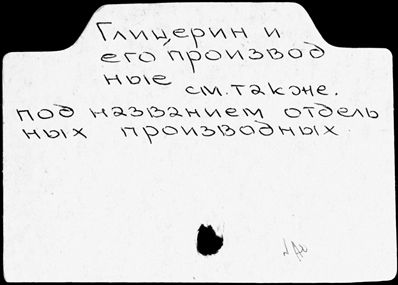 Глицерин и
его производ
ные
см. также.
под названием отдель
ных производных.